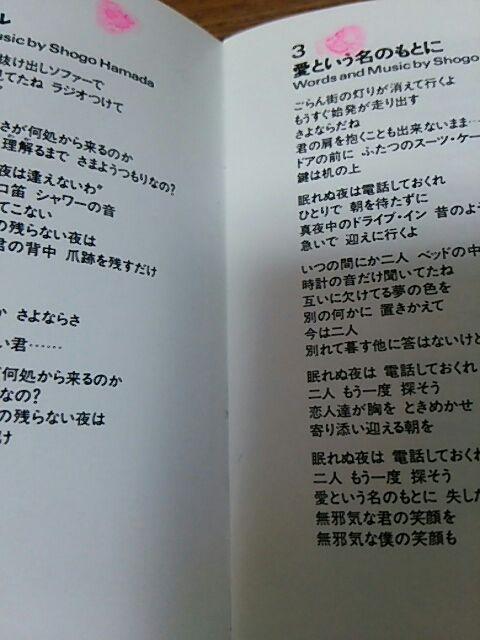 ル
usic by Shogo Hamada
抜け出しソファーで
見てたね ラジオつけて
さが何処から来るのか
理解るまで さまようつもりなの?
夜は逢えないわ"
口笛 シャワーの音
てこない
の残らない夜は
君の背中 爪跡を残すだけ
か さよならさ
い君……
が何処から来るのか
なの?
の残らない夜は
け
3
愛という名のもとに
Words and Music by Shogo
ごらん街の灯りが消えて行くよ
もうすぐ始発が走り出す
さよならだね
君の肩を抱くことも出来ないまま…
ドアの前に ふたつのスーツ・ケー
鍵は机の上
眠れぬ夜は電話しておくれ
ひとりで 朝を待たずに
真夜中のドライブ・イン 昔のよう
急いで 迎えに行くよ
いつの間にか二人 ベッドの中
時計の音だけ聞いてたね
互いに欠けてる夢の色を
別の何かに 置きかえて
今は二人
別れて暮す他に答はないけど
眠れぬ夜は 電話しておくれ
二人 もう一度 探そう
恋人達が胸を ときめかせ
寄り添い迎える朝を
眠れぬ夜は 電話しておくれ
二人 もう一度 探そう
愛という名のもとに 失した
無邪気な君の笑顔を
無邪気な僕の笑顔も